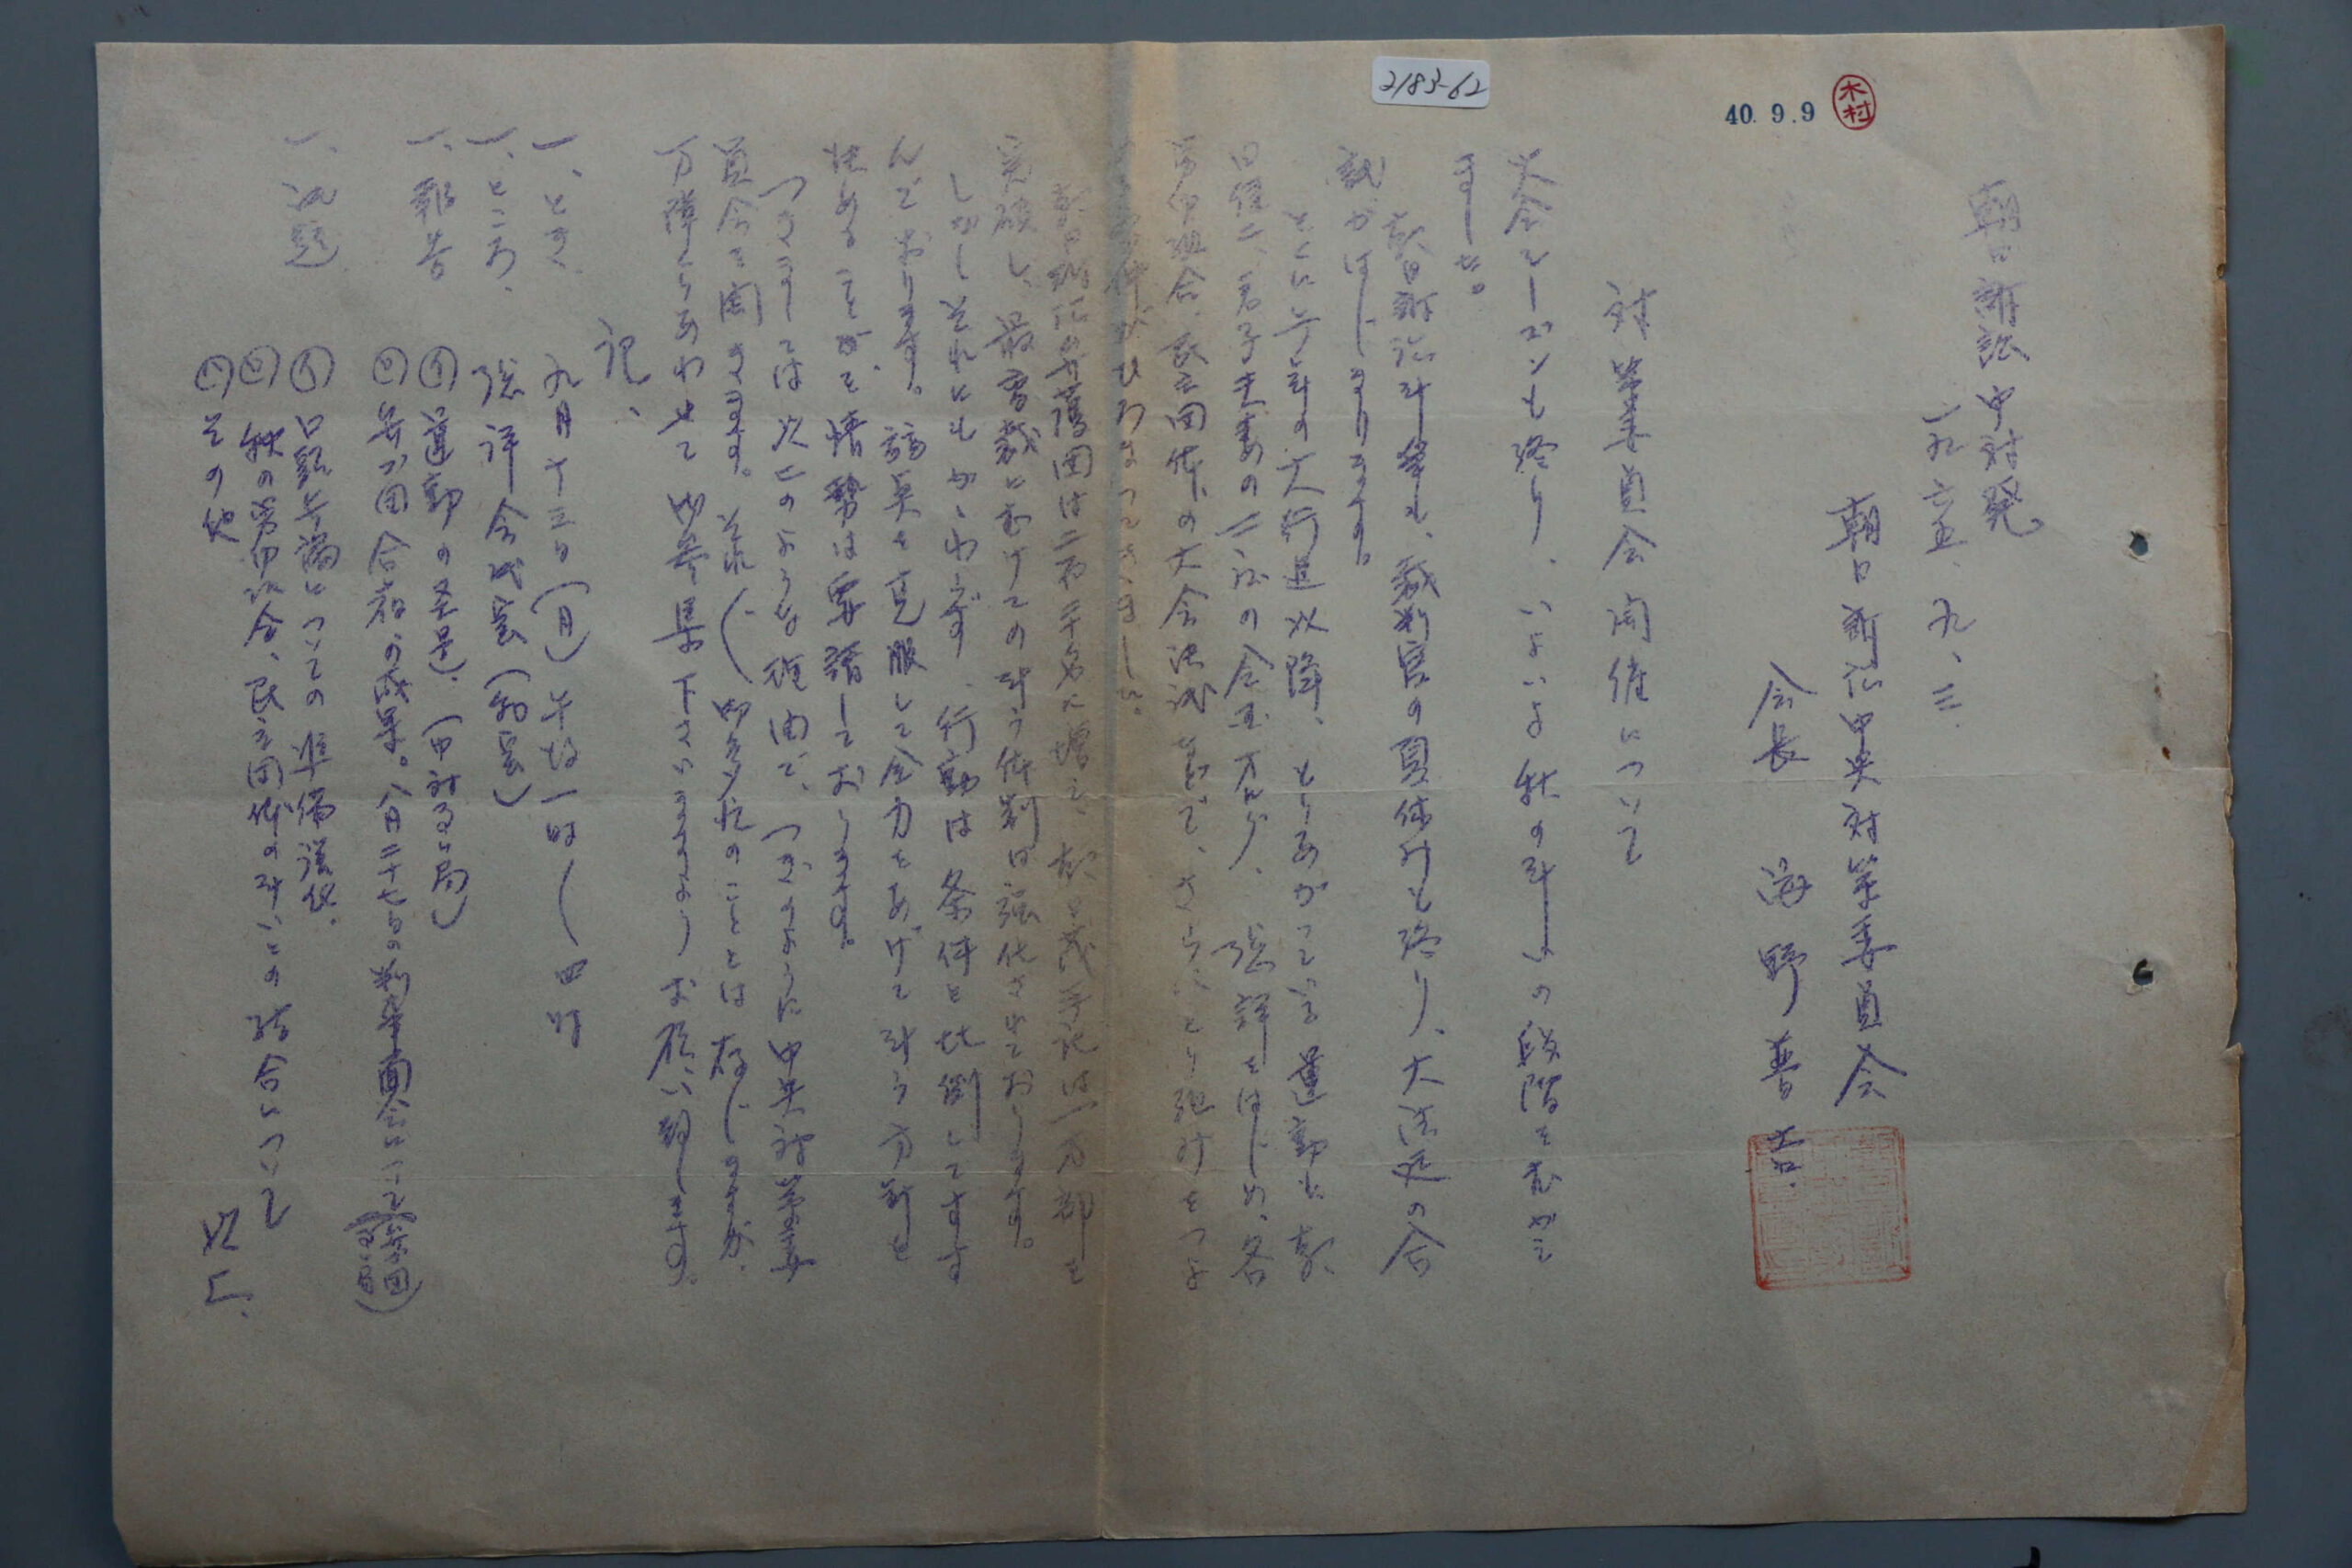 2183-62
40.9.9
木村
朝日訴訟中対発
一九六五、九、三、
朝日訴訟中央対策委員会
会長 海野普吉
対策委員会開催について
大会シーズンも終り、いよいよ秋の斗いの段階をむかえ
ました。
朝日訴訟斗争も、裁判官の夏休みも終り、大法廷の合
議がはじまります。
とくに今年の大行進以降、もりあがっている運動も朝
日健二、君子夫妻の二
総評をはじめ、各
労仂組合、民主団体の大会決議
で、さらにとり組みをつよ
める
がひろまってきました。
朝日訴訟の弁護団は二百三十名に増え、朝日茂手記は一万部を
突破し、最高裁にむけての斗う体制は強化されております。
しかしそれにもかかわらず、行動は条件と比例してすす
んでおります。
全力をあげて斗う方針を
決めることがを情勢は要請しております。
つきましては以上のような理由で、つぎのように中央対策委
員会を開きます。それ〲御多忙のこととは存じますが、
万障くりあわせて御参集下さいますようお願い致します。
記、
一、とき、 九月十三日(月)午後一時〜四時
一、ところ、 総評会議室
一、報告
(1) 運動の
(中対事ム局)
(2) 弁ゴ団合宿の成果。八月二十七日の判事面会について
(弁ゴ団)
一、議題
(1) 口頭弁論についての準備
(2) 秋の労仂組合、民主団体の斗いとの結合について
(3) その他
以上、